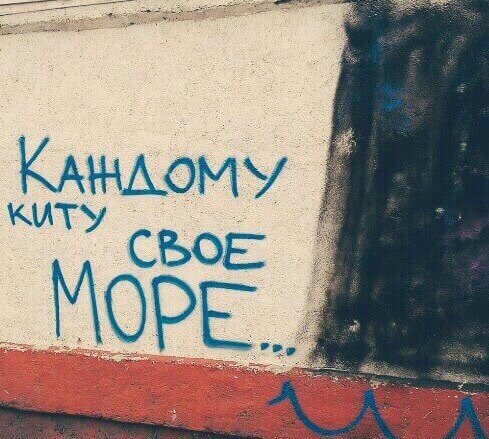 Каждому
киту
свое
Море...